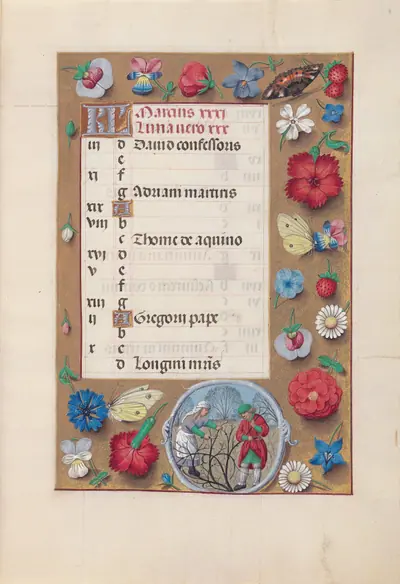 KL Martius xxxi
Luna vero xxx
iii d Dauid confessoris
e
xi f
g Adriani martiris
xix A
viii b
c Thome de aquino
xvi d
v e
f
xiii g
ii A Gregorii pape
b
x c
d Longini mris